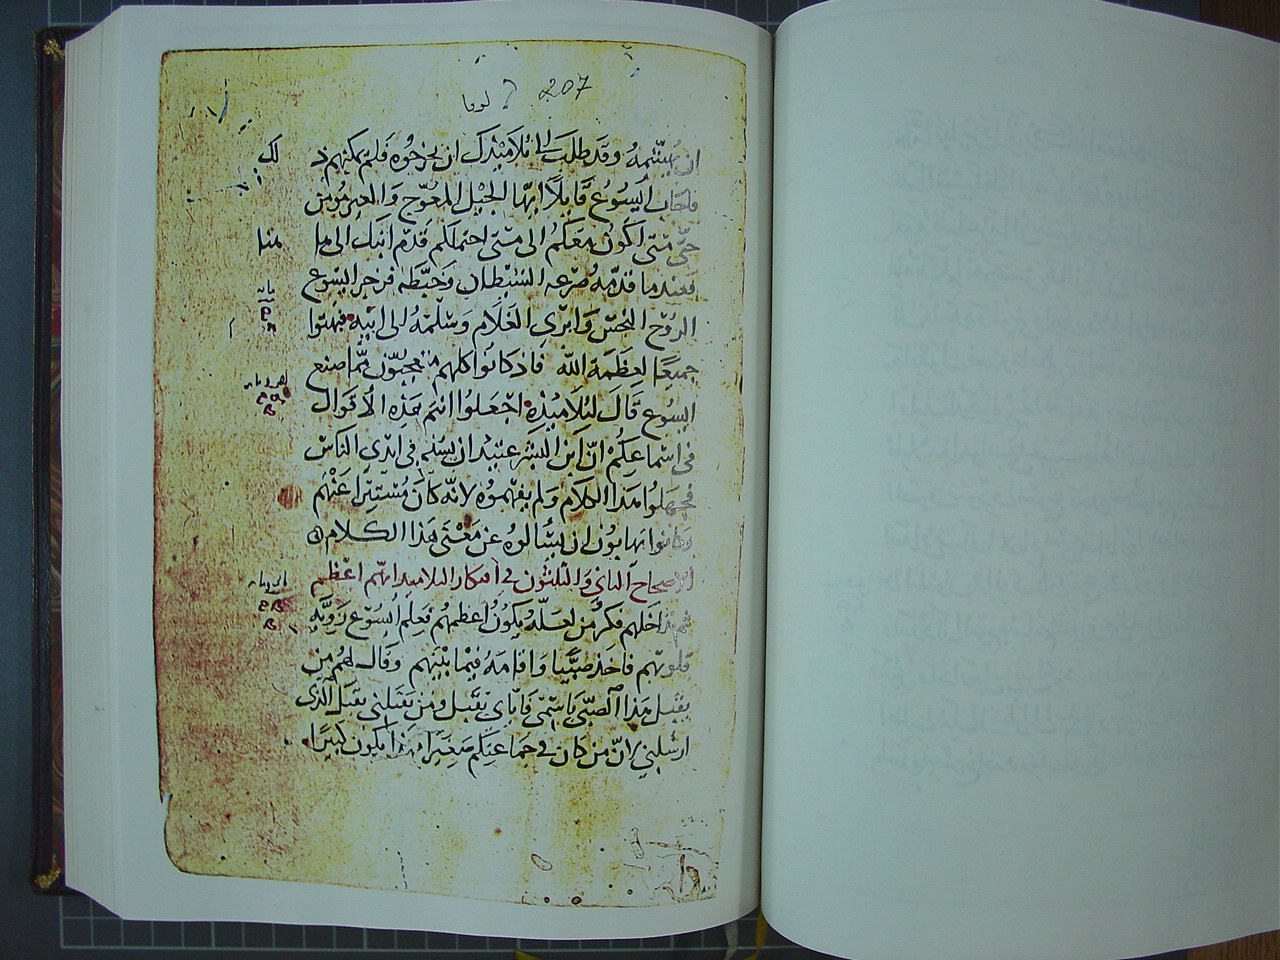 لوقا ? 207
ان يهشمه وقد طلبت الى تلاميذك ان يخرجوه فلم يمكنهم ذ
لك
فاجاب ايسوع قايلا ايها الجيل المعوج والغير مومن
حتى متى اكون معكم الى متى احتملكم قدم ابنك الى ها
هنا
فعندما قدمه صرعه الشيطان وخبطه فزجر ايسوع
الروح النجس وابرى الغلام وسلمه الى ابيه فبهتوا
جميعا لعظمة الله فاذ كانوا كلهم متعجبون مما صنع
ايسوع قال لتلاميذه اجعلوا انتم هذه الاقوال
في اسماعكم ان ابن البشر عتيد ان يسلم في ايدي الناس
فجهلوا هذا الكلام ولم يفهموه لانه كان مستترا عنهم
وكانوا يهابون ان يسالوه عن معنى هذا الكلام
الاصحاح الثاني والثلثون في افكار التلاميذ ايهم اعظم
ثم داخلهم فكر من لعله يكون اعظمهم فعلم ايسوع روية
قلوبهم فاخذ صبيا واقامه فيما بينهم وقال لهم من
يقبل هذا الصبي باسمي فاياي يقبل ومن يقبلني يقبل الذي
ارسلني لان من كان في جماعتكم صغيرا فهذا يكون كبيرا